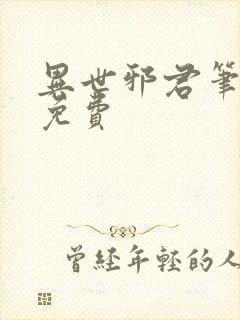 異世邪君筆
免費
曾經年輕的人